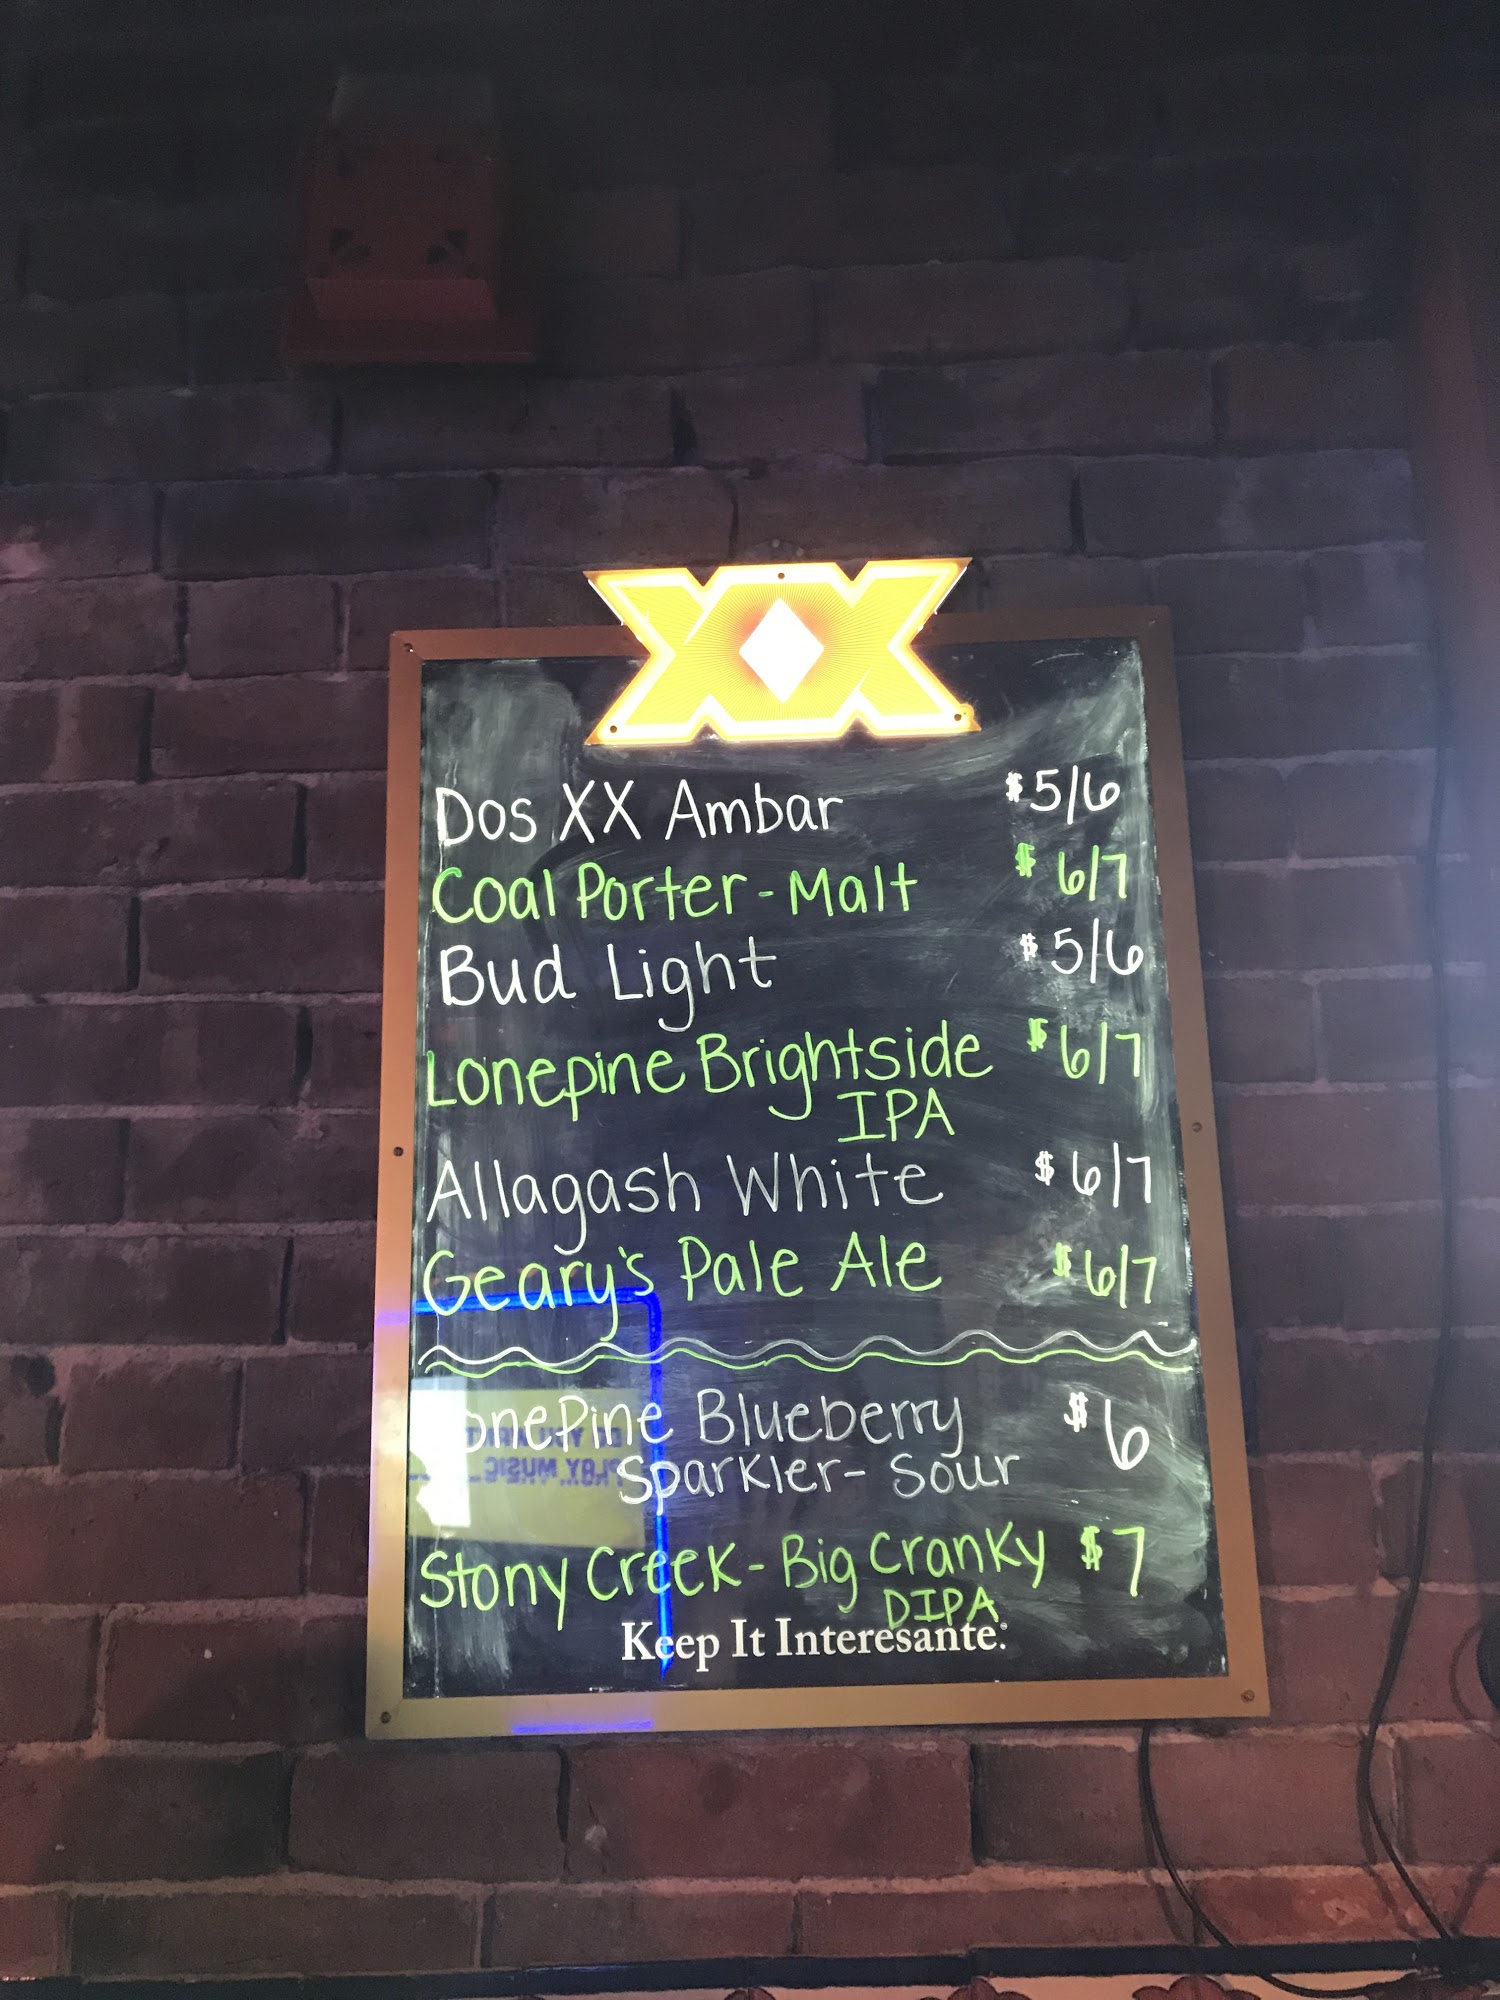 XX
Dos XX Ambar $5/6
Coal Porter - Malt $6/7
Bud Light $5/6
Lonepine Brightside $6/7
IPA
Allagash White $6/7
Geary's Pale Ale $6/7
LonePine Blueberry $6
Sparkler - Sour
Stony Creek - Big Cranky $7
DIPA
Keep It Interesante.
PLAY MUSIC